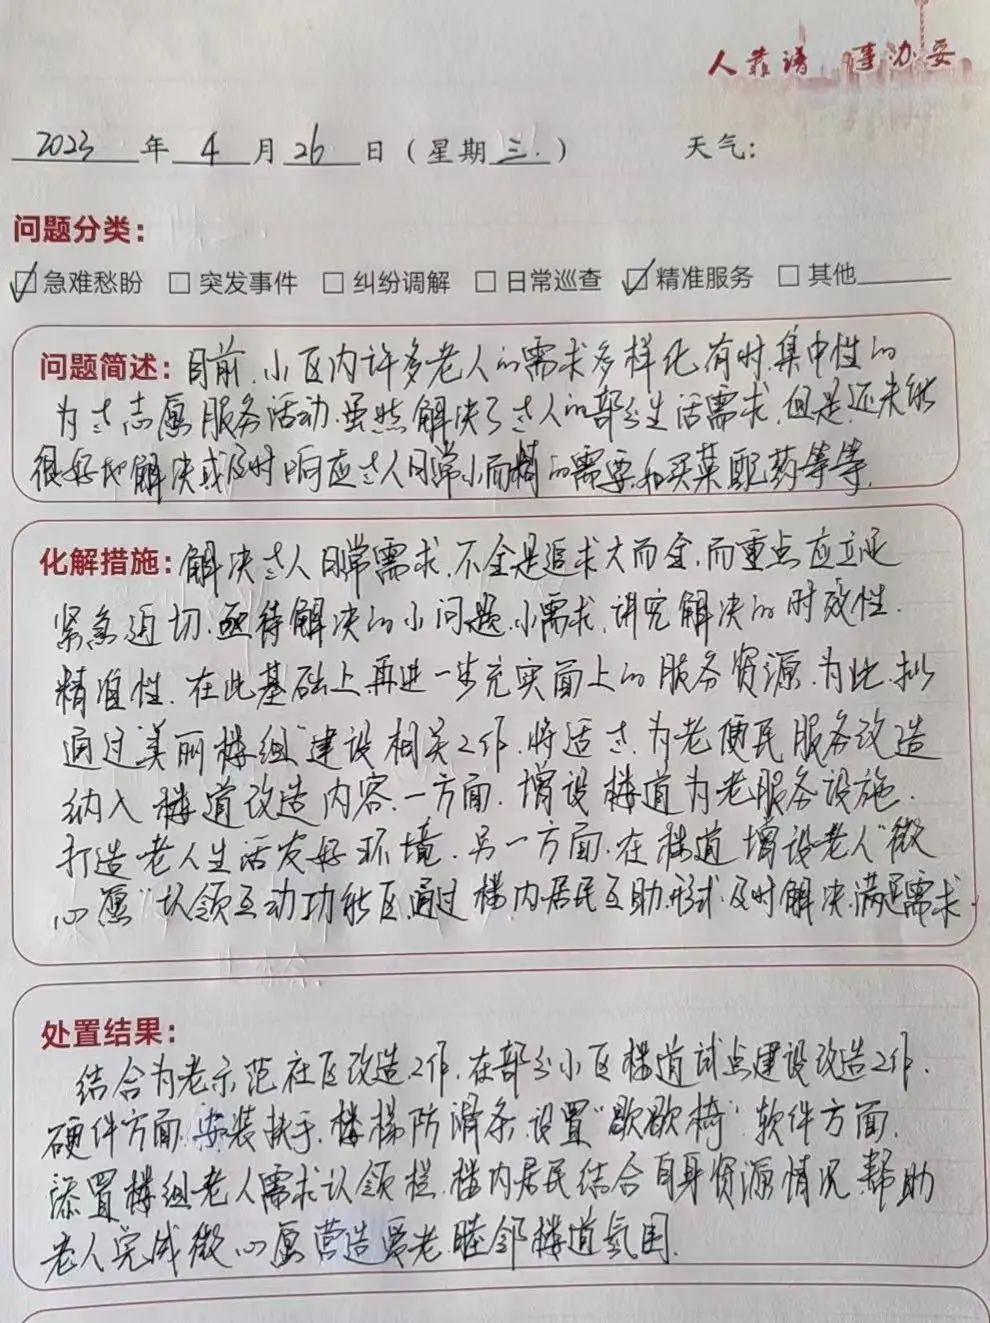 人靠谱 事办妥
2023年4月26日（星期三.） 天气：
问题分类：
☑急难愁盼 □突发事件 □纠纷调解 □日常巡查 ☑精准服务 □其他
问题简述：目前,小区内许多老人的需求多样化,有时,集中性的
为老志愿服务活动.虽然解决了老人的部分生活需求,但是,还未能
很好地解决或及时响应老人日常小而精的需要,如买菜配药等等.
化解措施：解决老人日常需求,不全是追求大而全,而重点应立足
紧急迫切.亟待解决的小问题.小需求,讲究解决的时效性.
精准性.在此基础上再进一步充实面上的服务资源.为此,拟
通过"美丽楼组"建设相关工作,将适老.为老便民服务改造
纳入楼道改造内容.一方面,增设楼道为老服务设施.
打造老人生活友好环境.另一方面,在楼道增设老人"微
心愿"认领互动功能区,通过楼内居民互助形式,及时解决.满足需求.
处置结果：
结合为老示范社区改造工作,在部分小区楼道试点建设改造工作.
硬件方面,安装扶手,楼梯防滑条,设置"歇歇椅".软件方面,
添置楼组老人需求认领栏,楼内居民结合自身资源情况,帮助
老人完成微心愿,营造爱老睦邻楼道氛围.